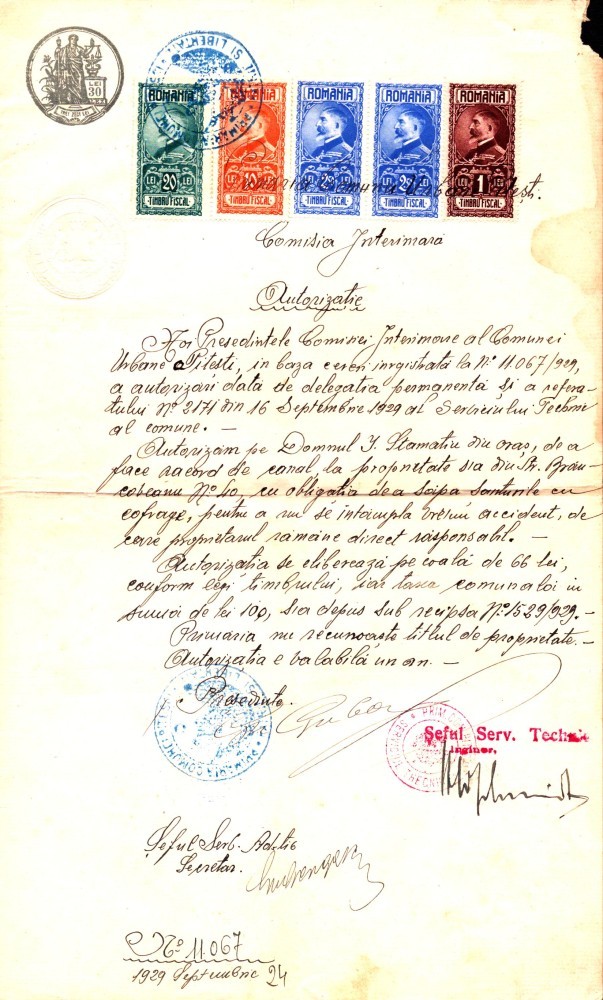 LEI
30
ȘI LIBERTA
PRIMARIA COMUN
ROMANIA ROMANIA ROMANIA ROMANIA ROMANIA
LEI 20 LEI LEI 10 LEI LEI 2 LEI LEI 2 LEI LEI 1 LEU
TIMBRU FISCAL TIMBRU FISCAL TIMBRU FISCAL TIMBRU FISCAL TIMBRU FISCAL
Primaria Comunei Urbane Pitești.
Comisia Interimară
Autorizatie
Noi Presedintele Comisiei Interimare al Comunei
Urbane Pitesti, in baza cererii inregistrată la No 11.067/929,
a autorizări dată de delegatia permanentă și a refera-
tului No 2171 din 16 Septembrie 1929 al Serviciului Technic
al comune. —
Autorizăm pe Domnul I. Stamatiu din oraș, de a
face racord de canal, la proprietate sia din Str. Brân-
coveanu No 40, cu obligatia de a săpa santurile cu
cofrage, pentru a nu se intâmpla vreun accident, de
care proprietarul ramâne direct răsponsabil. —
Autorizatia se eliberează pe coală de 66 lei,
conform legi timbrului, iar taxa comunala in
sumă de lei 100, s'a depus sub recipsa No 1529/929. —
Primăria nu recunoaste titlul de proprietate. —
Autorizatia e valabilă un an. —
Presedinte
PRIMARIA COMUNEI
Șeful Serv. Technic
Inginer,
Șeful Serv. Ad-tiv
Secretar.
No 11.067
1929 Septembrie 24